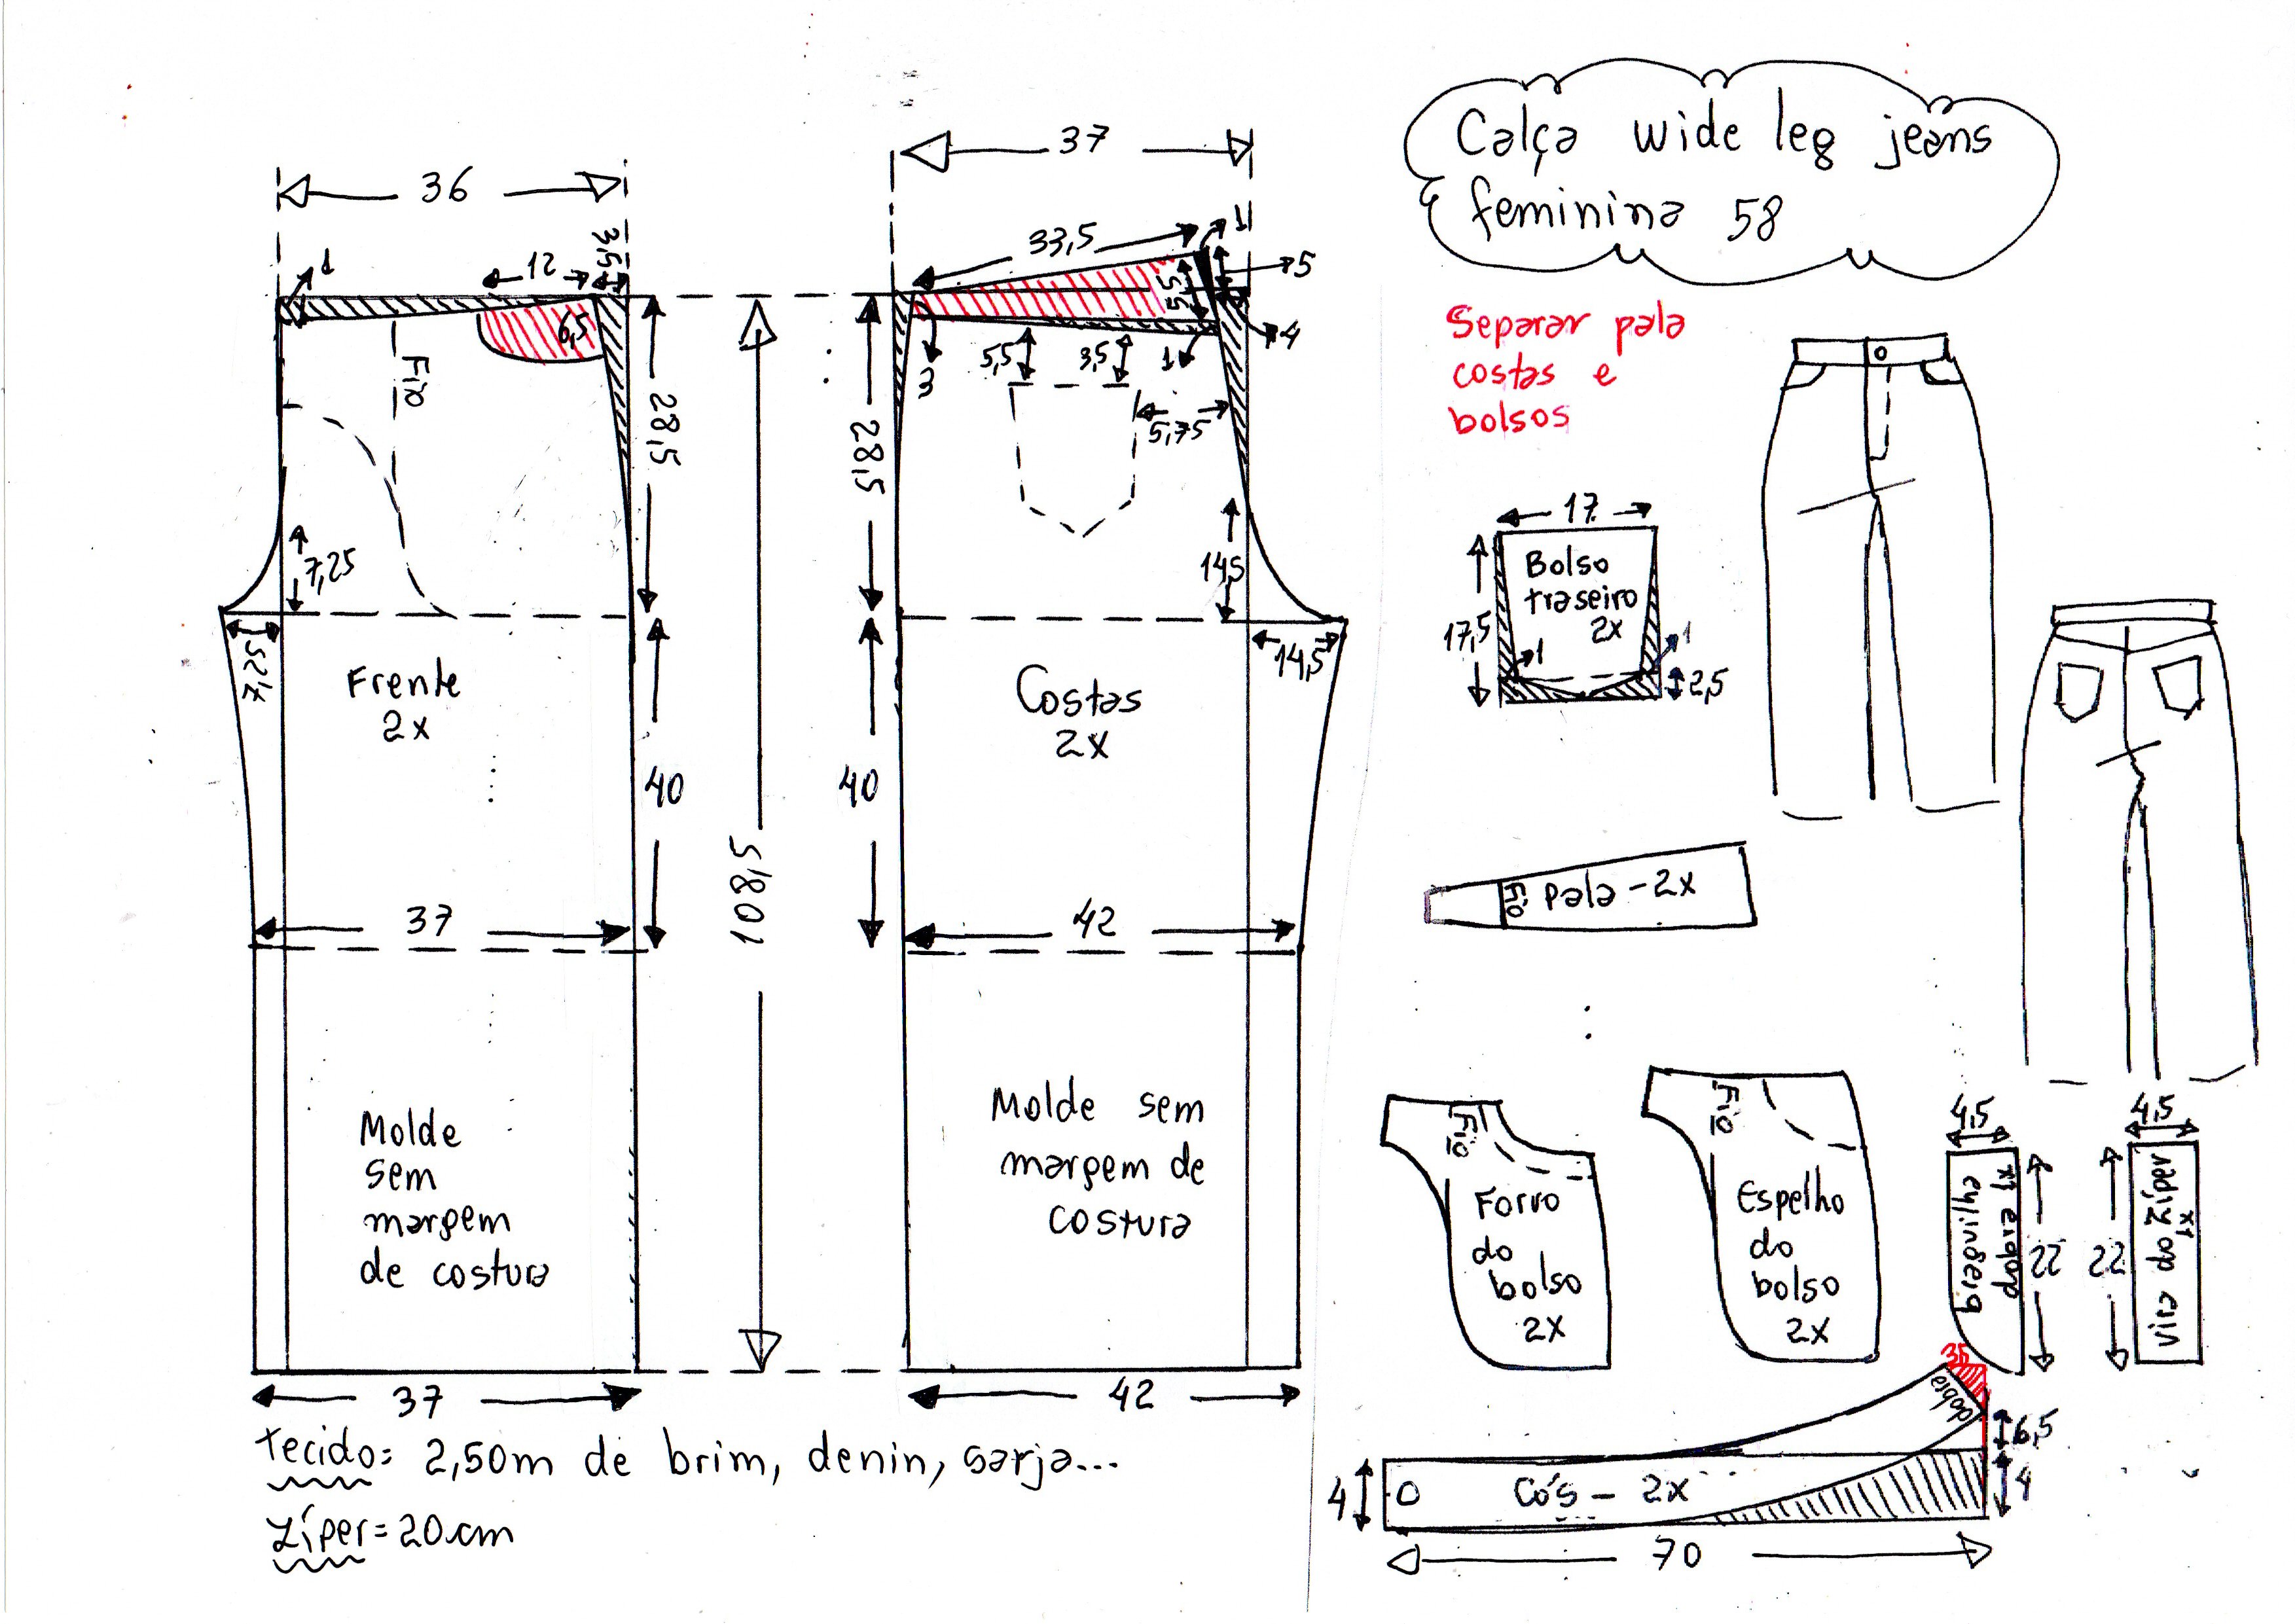 Calça wide leg jeans
feminina 58
Separar pala
costas e
bolsos
36
1
12
3,5
6,5
Fio
28,5
7,25
7,25
Frente
2x
40
37
108,5
Molde
sem
margem
de costura
37
37
33,5
1
5
5,5
4
3
5,5
3,5
1
5,75
28,5
14,5
14,5
Costas
2x
40
42
Molde sem
margem de
costura
42
tecido: 2,50m de brim, denin, sarja...
zíper = 20cm
17
Bolso
traseiro
2x
17,5
1
1
2,5
Fio
pala - 2x
Fio
Forro
do
bolso
2x
Fio
Espelho
do
bolso
2x
4,5
braguilha
dobra 1x
22
4,5
vira do zíper
1x
22
3,5
dobra
6,5
4
4
Cós - 2x
70